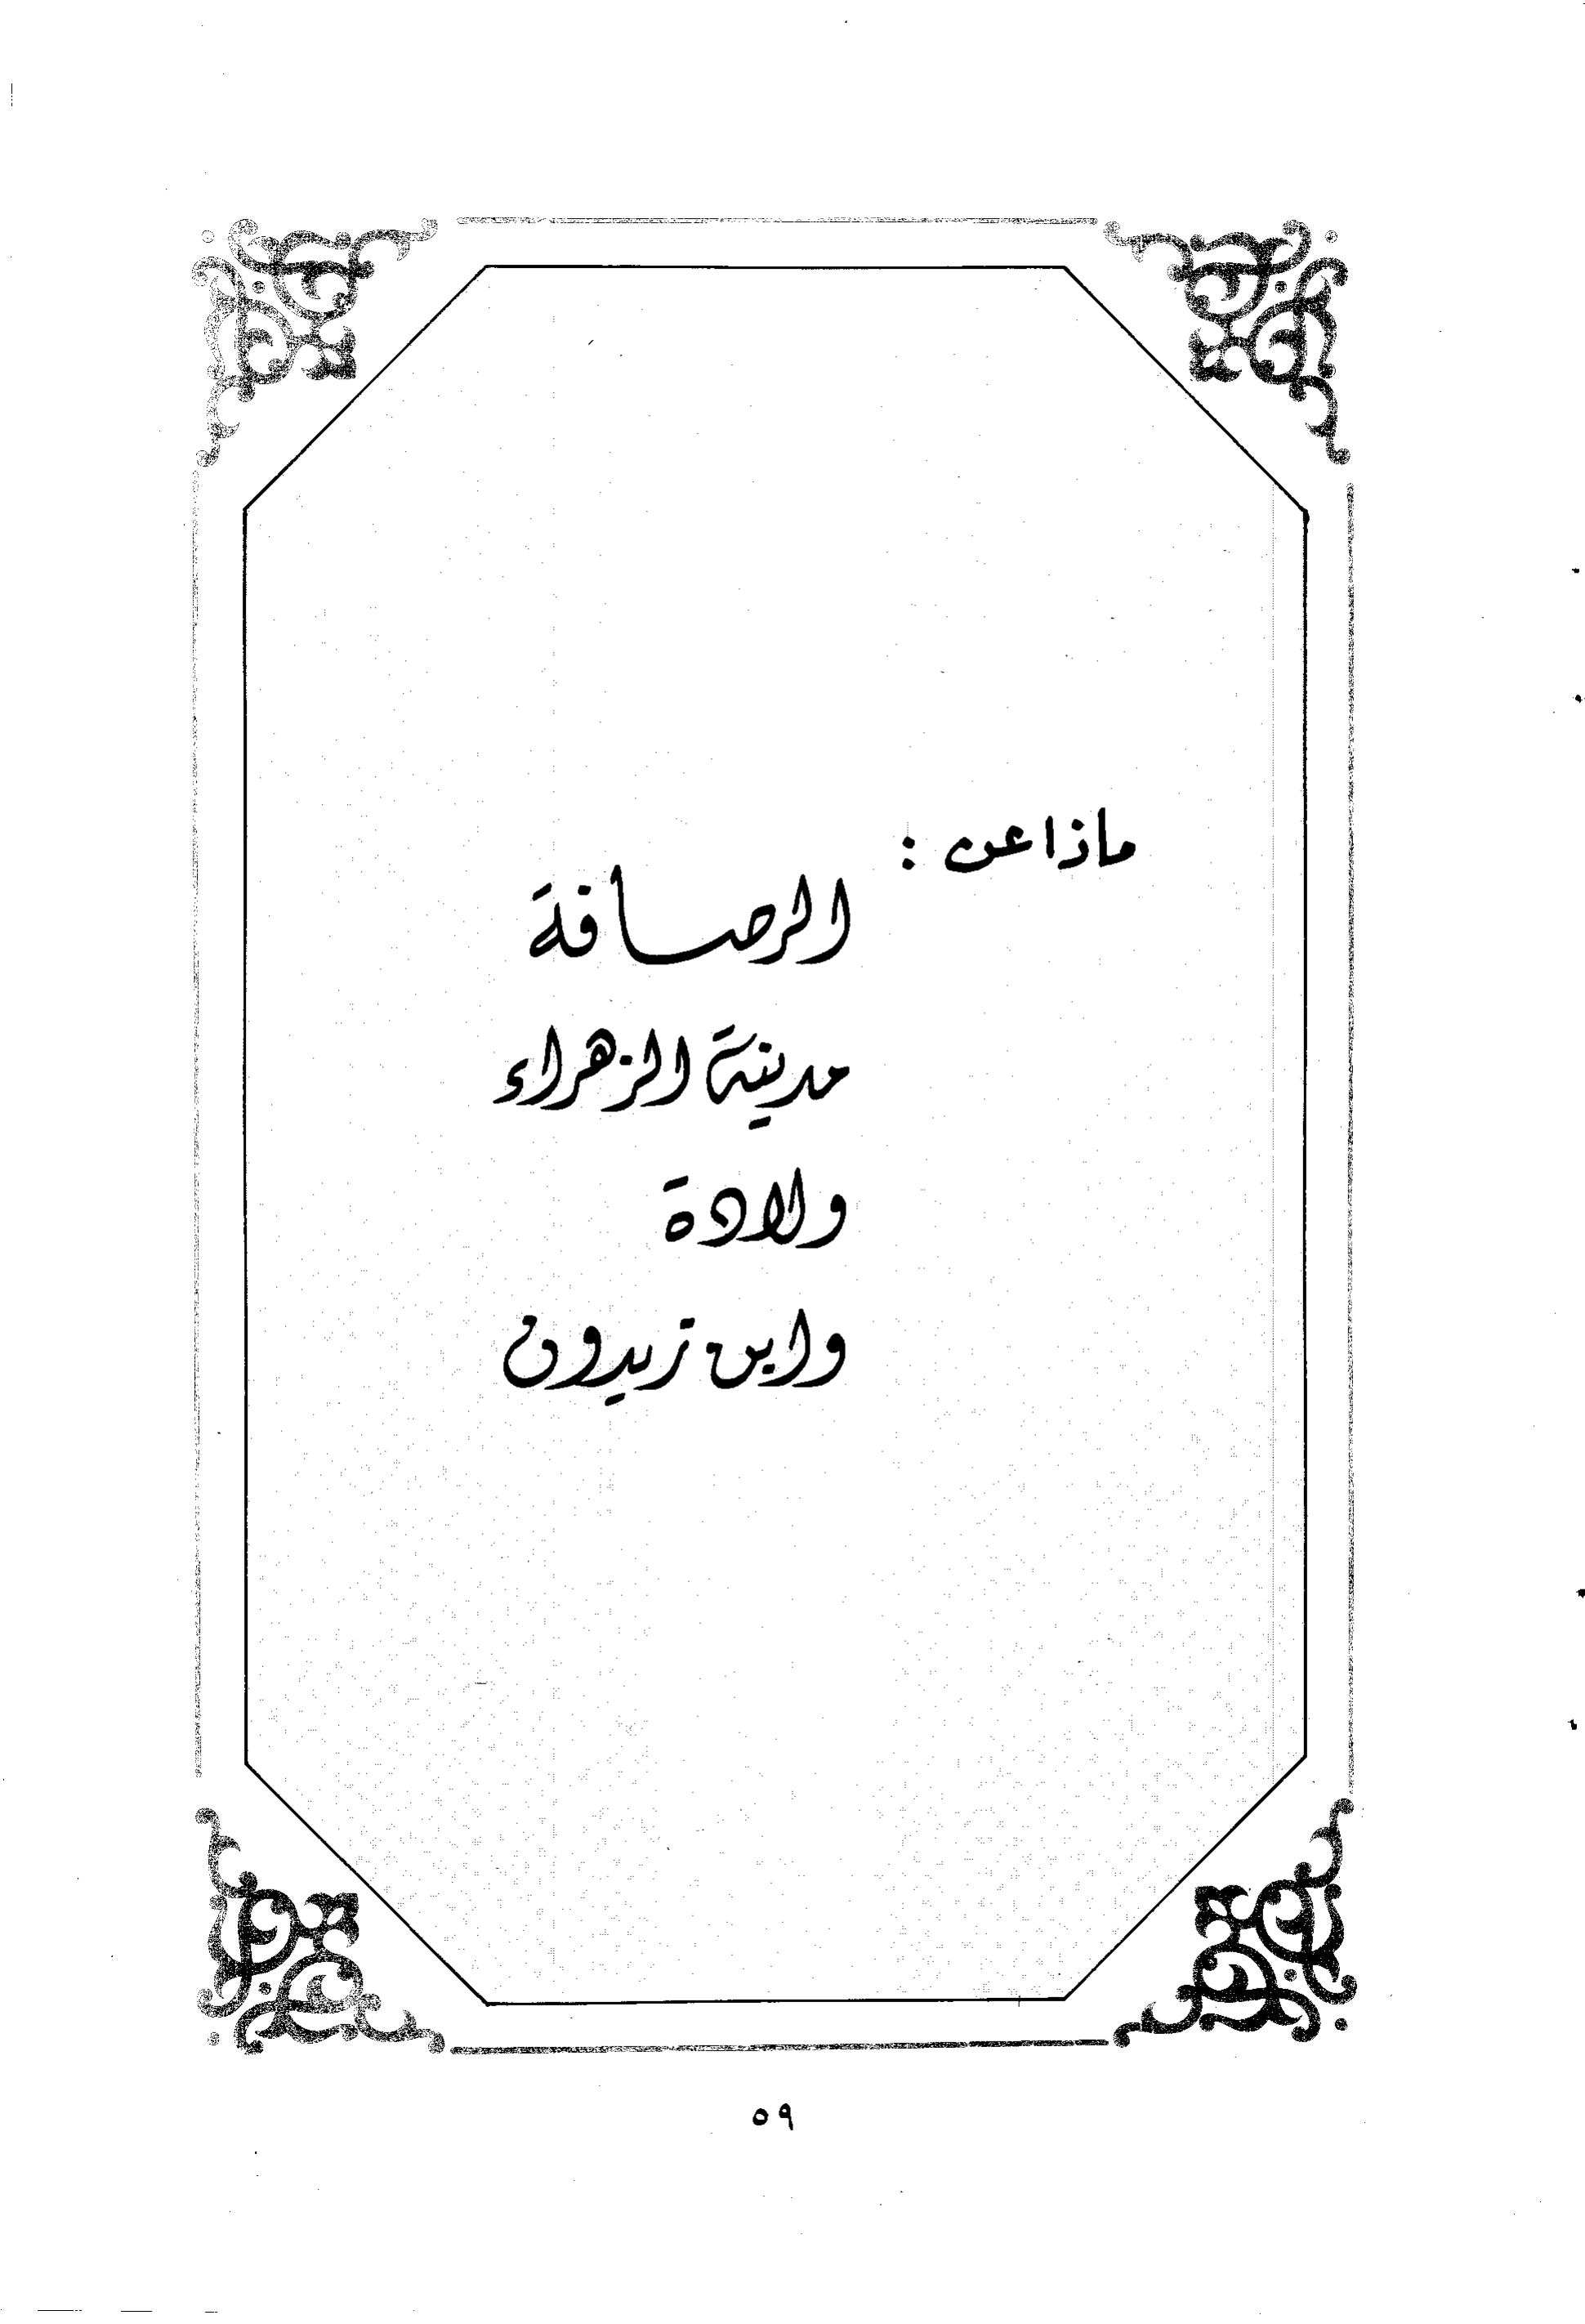 ماذا عن :
الرصافة
مدينة الزهراء
ولادة
وابن زيدون
٥٩